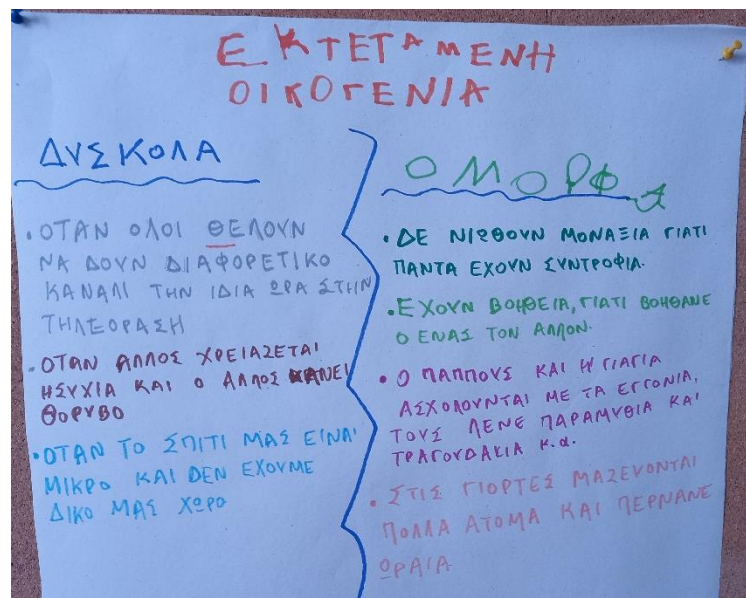 ΕΚΤΕΤΑΜΕΝΗ
ΟΙΚΟΓΕΝΙΑ
ΔΥΣΚΟΛΑ
• ΟΤΑΝ ΟΛΟΙ ΘΕΛΟΥΝ
ΝΑ ΔΟΥΝ ΔΙΑΦΟΡΕΤΙΚΟ
ΚΑΝΑΛΙ ΤΗΝ ΙΔΙΑ ΩΡΑ ΣΤΗΝ
ΤΗΛΕΟΡΑΣΗ
• ΟΤΑΝ ΑΛΛΟΣ ΧΡΕΙΑΖΕΤΑΙ
ΗΣΥΧΙΑ ΚΑΙ Ο ΑΛΛΟΣ ΚΑΝΕΙ
ΘΟΡΥΒΟ
• ΟΤΑΝ ΤΟ ΣΠΙΤΙ ΜΑΣ ΕΙΝΑΙ
ΜΙΚΡΟ ΚΑΙ ΔΕΝ ΕΧΟΥΜΕ
ΔΙΚΟ ΜΑΣ ΧΩΡΟ
ΟΜΟΡΦΑ
• ΔΕ ΝΙΩΘΟΥΝ ΜΟΝΑΞΙΑ ΓΙΑΤΙ
ΠΑΝΤΑ ΕΧΟΥΝ ΣΥΝΤΡΟΦΙΑ.
• ΕΧΟΥΝ ΒΟΗΘΕΙΑ, ΓΙΑΤΙ ΒΟΗΘΑΝΕ
Ο ΕΝΑΣ ΤΟΝ ΑΛΛΟΝ.
• Ο ΠΑΠΠΟΥΣ ΚΑΙ Η ΓΙΑΓΙΑ
ΑΣΧΟΛΟΥΝΤΑΙ ΜΕ ΤΑ ΕΓΓΟΝΙΑ,
ΤΟΥΣ ΛΕΝΕ ΠΑΡΑΜΥΘΙΑ ΚΑΙ
ΤΡΑΓΟΥΔΑΚΙΑ κ.α.
• ΣΤΙΣ ΓΙΟΡΤΕΣ ΜΑΖΕΥΟΝΤΑΙ
ΠΟΛΛΑ ΑΤΟΜΑ ΚΑΙ ΠΕΡΝΑΝΕ
ΩΡΑΙΑ